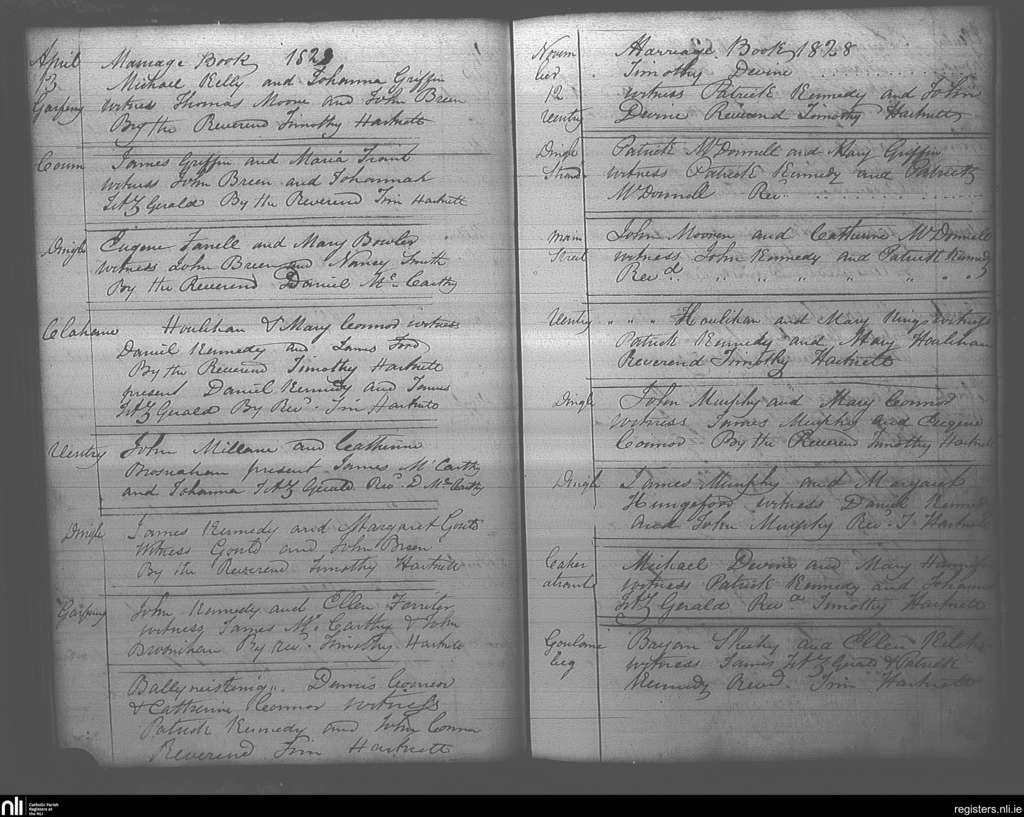 April Marriage Book 1828
13 Michael Kelly and Johanna Griffin
Garfiny witness Thomas Moore and John Breen
By the Reverend Timothy Hartnett
Coum James Griffin and Maria Trant
witness John Breen and Johannah
FitzGerald By the Reverend Tim Hartnett
Dingle Eugene Farell and Mary Bowler
witness John Breen and Nancy Smith
By the Reverend Daniel McCarthy
Clahane Houlihan & Mary Connor witness
Daniel Kennedy and James Ford
By the Reverend Timothy Hartnett
present Daniel Kennedy and James
FitzGerald By Revd. Tim Hartnett
Ventry John Millane and Catherine
Brosnahan present James McCarthy
and Johanna FitzGerald Revd. D McCarthy
Dingle James Kennedy and Margaret Gould
Witness Gould and John Breen
By the Reverend Timothy Hartnett
Garfiny John Kennedy and Ellen Ferriter
witness James McCarthy & John
Brosnahan By rev. Timothy Hartnett
Dennis Connor
& Catherine Connor witness
Patrick Kennedy and John Connor
Reverend Tim Hartnett
Novem Marriage Book 1828
ber Timothy Devine
12 witness Patrick Kennedy and John
Ventry Devine Reverend Timothy Hartnett
Dingle Patrick McDonnell and Mary Griffin
Strand witness Patrick Kennedy and Patrick
McDonnell Revd
main John Mooren and Catherine McDonnell
Street witness John Kennedy and Patrick Kennedy
Revd. " " " " " "
Ventry " " " Houlihan and Mary King witness
Patrick Kennedy and Mary Houlihan
Reverend Timothy Hartnett
Dingle John Murphy and Mary Connor
witness James Murphy and Eugene
Connor By the Reverend Timothy Hartnett
Dingle James Murphy and Margaret
Hungeford witness Daniel Kennedy
and John Murphy Rev. T. Hartnett
Caher Michael Devine and Mary
atrant witness Patrick Kennedy and Johanna
FitzGerald Revd Timothy Hartnett
Goulane Bryan Sheehy and Ellen
beg witness James FitzGerald & Patrick
Kennedy Revd. Tim Hartnett
nli Catholic Parish
Registers at
the NLI
registers.nli.ie